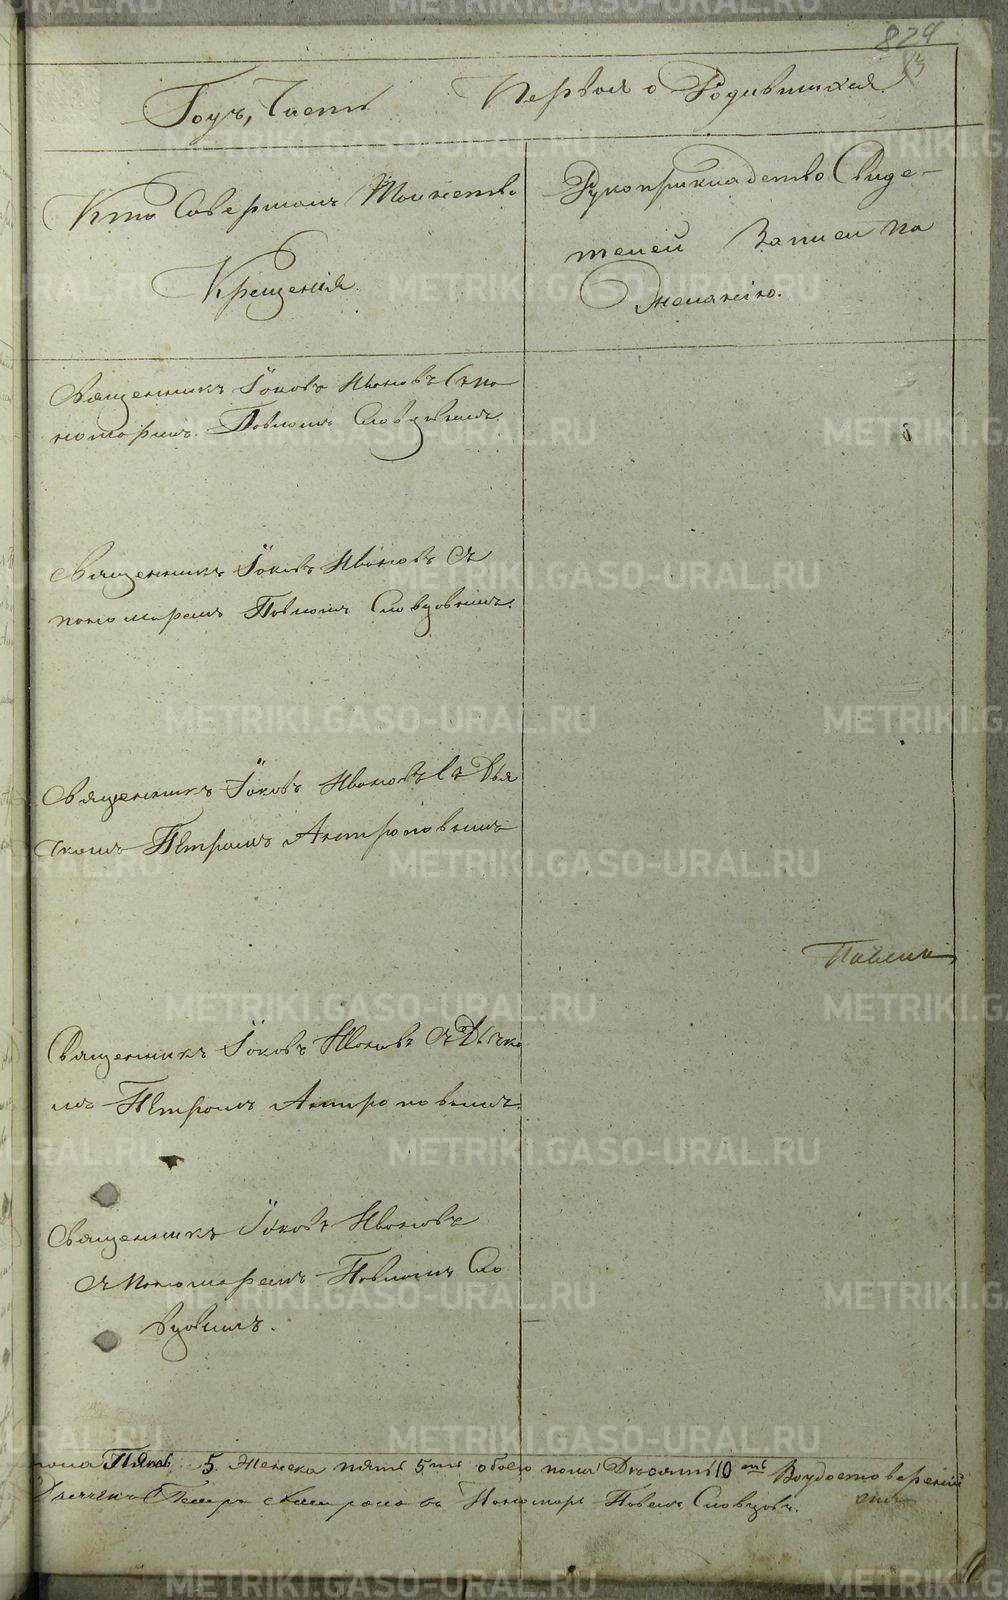 824
13
Годъ, Часть Первая о Родившихся.
Кто Совершалъ Таинство
Крещенія.
Рукоприкладство Свиде-
телей Записи По
Желанію.
Священникъ Іаковъ Ивановъ Съ по
номаремъ Павломъ Словцовымъ.
Священникъ Іаковъ Ивановъ Съ
пономаремъ Павломъ Словцовымъ.
Священникъ Іаковъ Ивановъ Съ Дья
чкомъ Петромъ Антроповымъ
Священникъ Іаковъ Ивановъ Съ Дьячко
мъ Петромъ Антроповымъ.
Священникъ Іаковъ Ивановъ
Съ Пономаремъ Павломъ Сло
вцовымъ.
пола Пять 5. Женска пять 5ть обоего пола Десять 10ть Воудостоверении
Дьячекъ Петръ Антроповъ Пономарь Павелъ Словцовъ.
METRIKI.GASO-URAL.RU